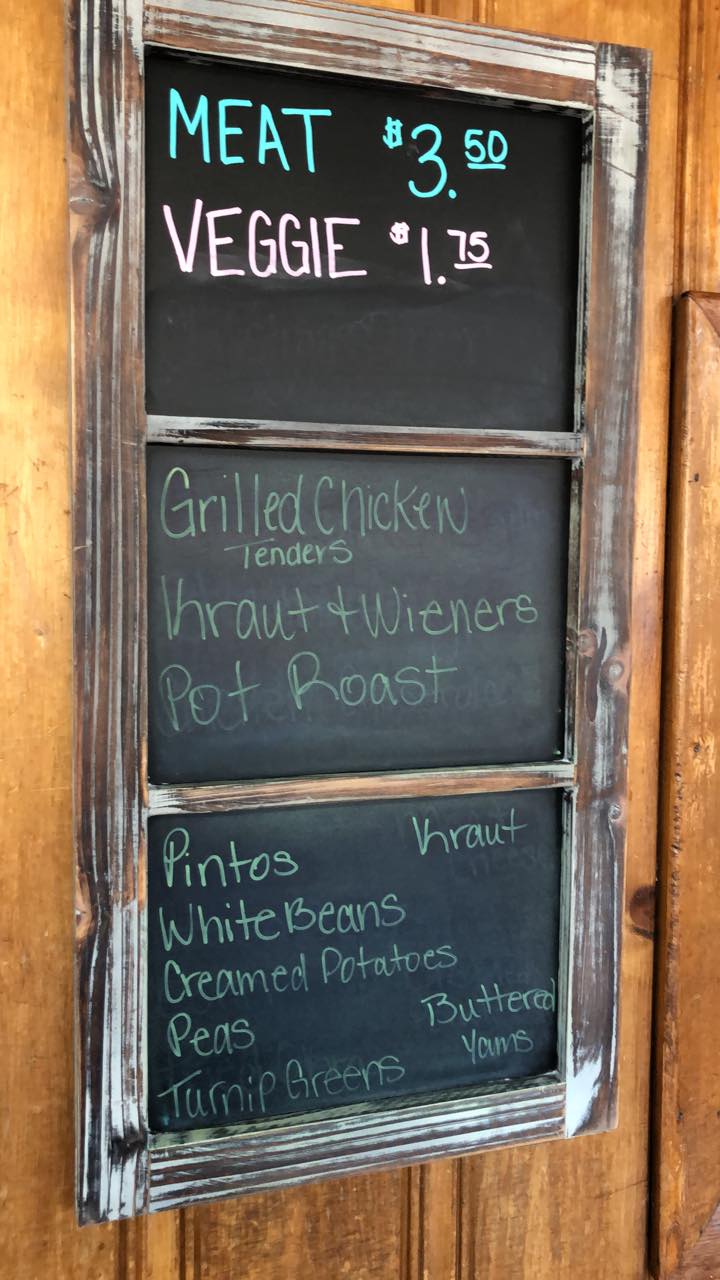 MEAT $3.50
VEGGIE $1.75
Grilled Chicken
Tenders
Kraut + Wieners
Pot Roast
Pintos
Kraut
White Beans
Creamed Potatoes
Peas
Buttered
Yams
Turnip Greens